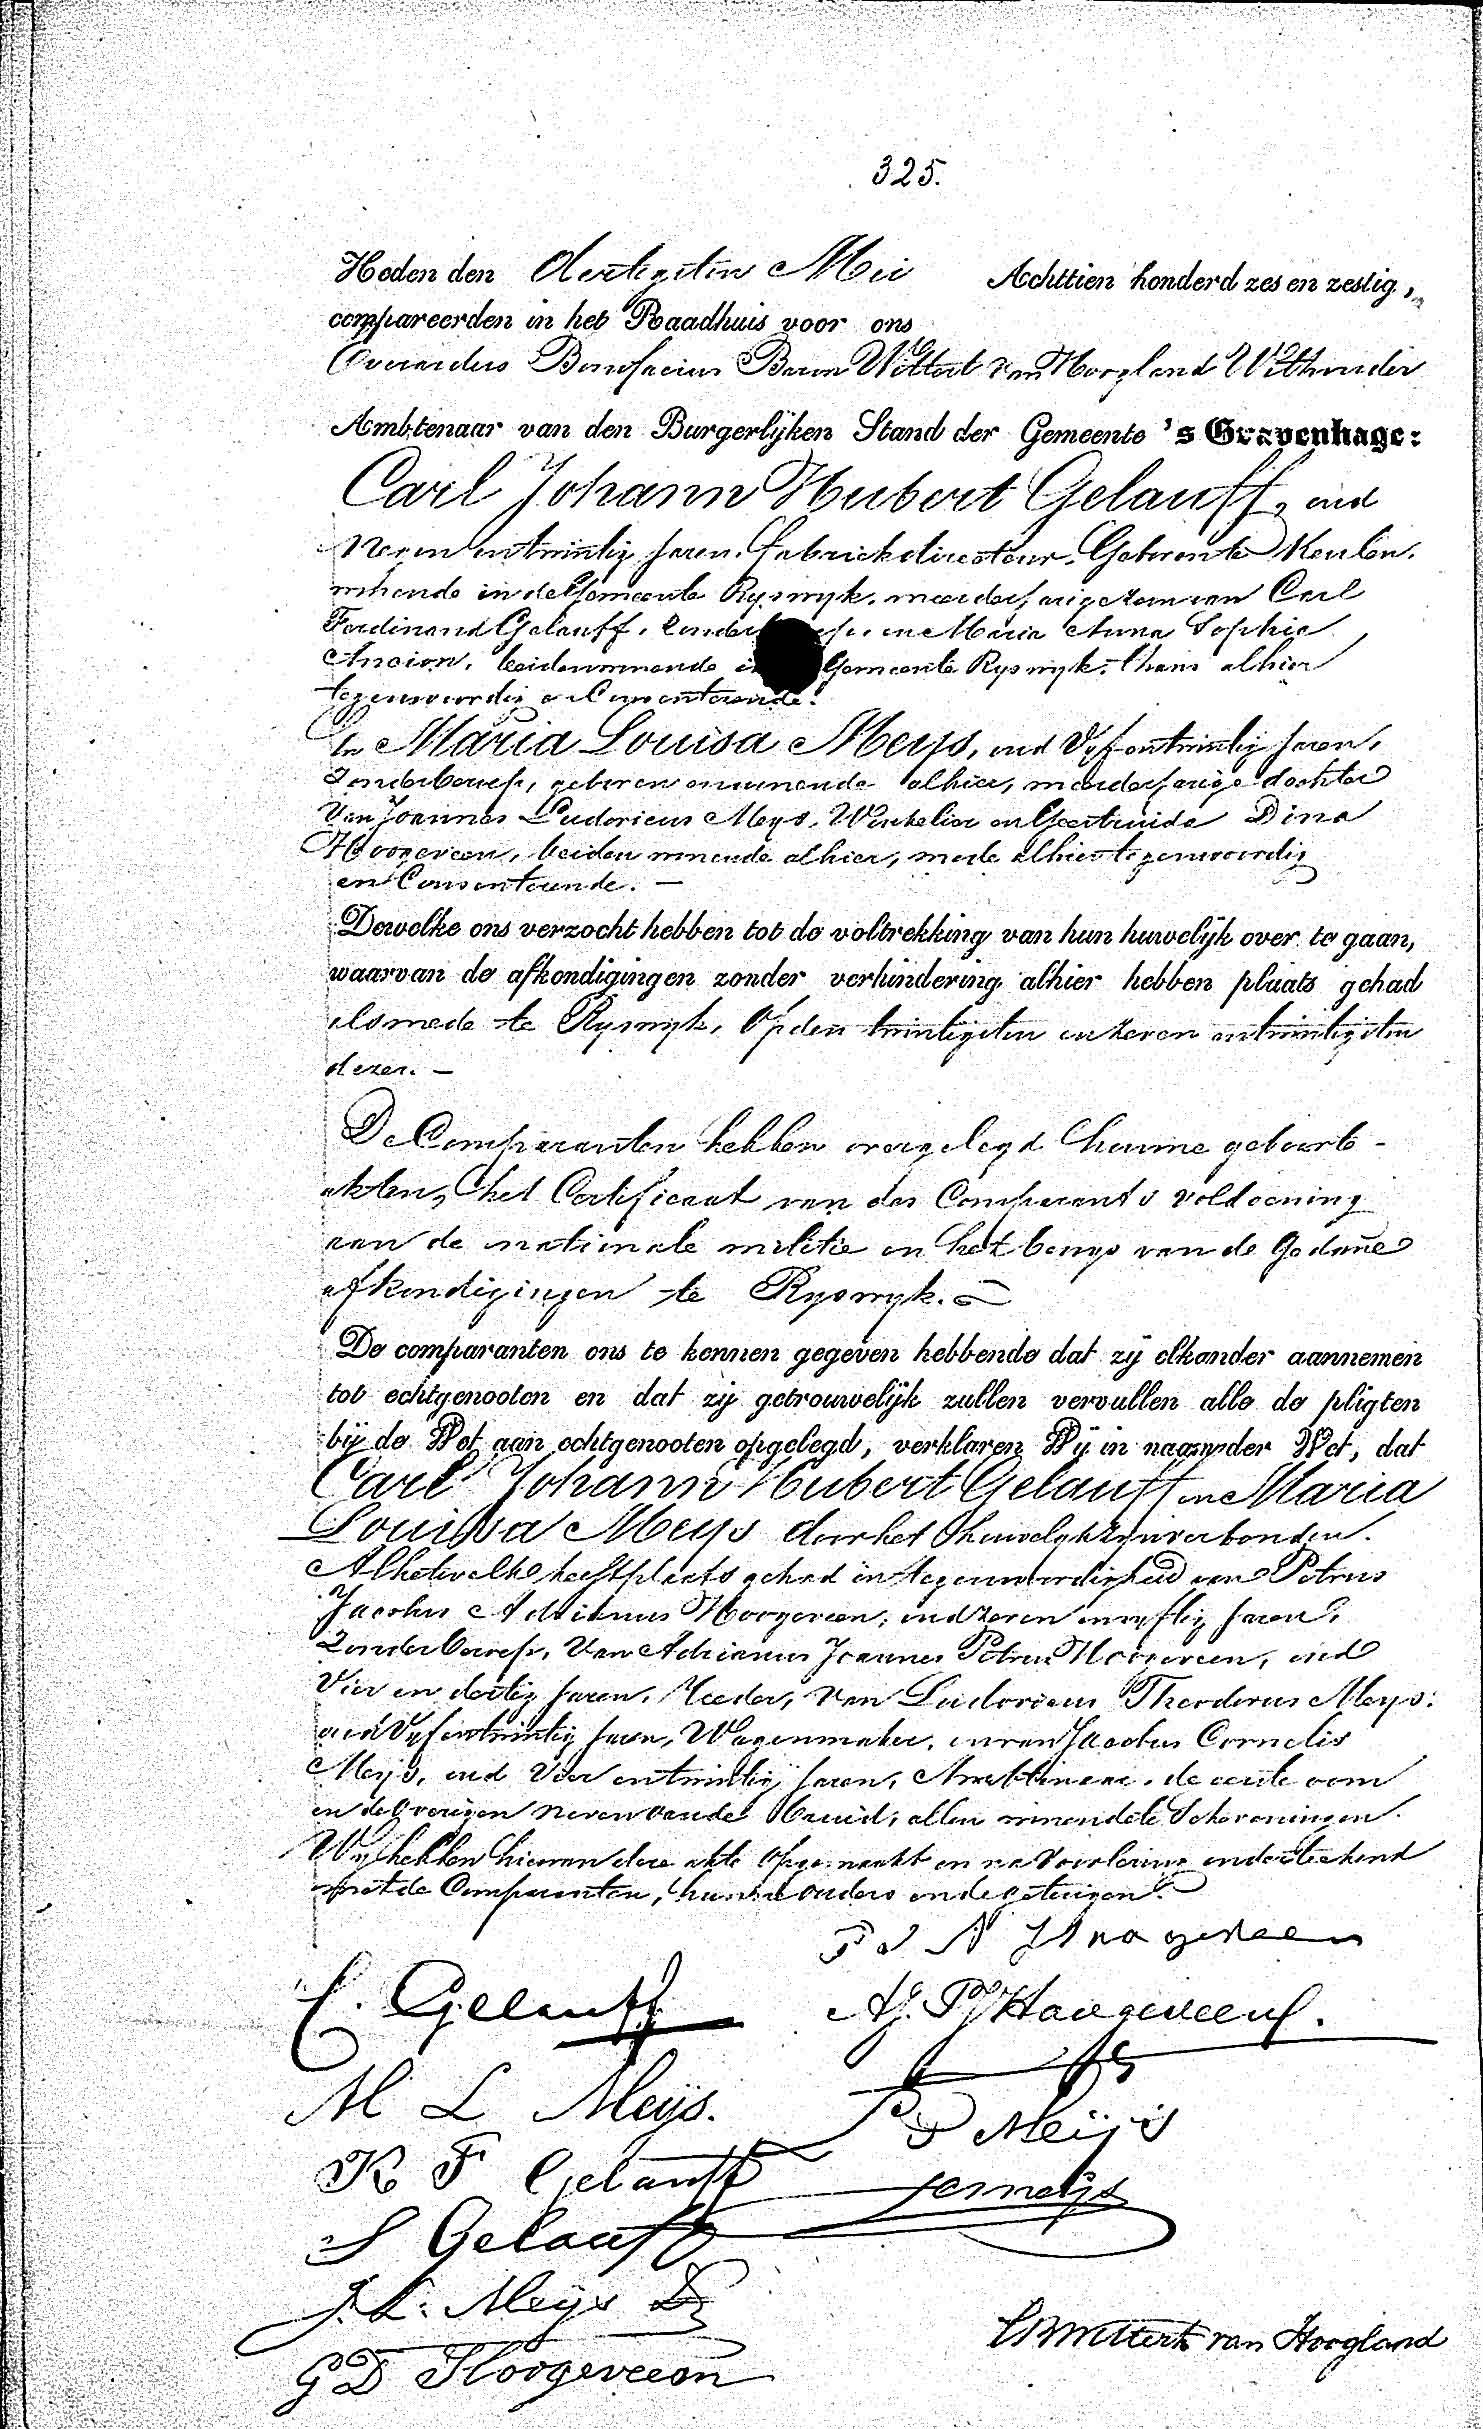 325.
Heden den dertigsten Mei Achttien honderd zes en zestig,
compareerden in het Raadhuis voor ons
Everardus Bonifacius Baron Wittert van Hoogland Wethouder
Ambtenaar van den Burgerlijken Stand der Gemeente 's Gravenhage:
Carl Johann Hubert Gelauff, oud
negen en twintig Jaren, fabriekdirecteur, Geboren te Keulen,
wonende in de Gemeente Ryswyk, meerderjarige zoon van Carl
Ferdinand Gelauff, zonder en Maria Anna Sophie
Ancion, beiden wonende Gemeente Ryswyk, thans alhier
tegenwoordig en Consenterende.
En Maria Louisa Meys, oud Vyf en twintig Jaren,
Zonder beroep, geboren en wonende alhier, meerderjarige dochter
Van Joannes Ludovicus Meys, Winkelier en Geertruida Dina
Hoogeveen, beiden wonende alhier, mede alhier tegenwoordig
en Consenterende. —
Dewelke ons verzocht hebben tot de voltrekking van hun huwelijk over te gaan,
waarvan de afkondigingen zonder verhindering alhier hebben plaats gehad
alsmede te Ryswyk, Op den twintigsten en zeven en twintigsten
dezer. —
De Comparanten hebben overgelegd hunne geboorte-
akten, het Certificaat van des Comparants voldoening
aan de nationale militie en het bewys van de gedane
afkondigingen te Ryswyk.
De comparanten ons te kennen gegeven hebbende dat zij elkander aannemen
tot echtgenooten en dat zij getrouwelijk zullen vervullen alle de pligten
bij de Wet aan echtgenooten opgelegd, verklaren Wij in naam der Wet, dat
Carl Johann Hubert Gelauff en Maria
Louisa Meys door het huwelyk zyn verbonden.
Al hetwelk heeft plaats gehad in tegenwoordigheid van Petrus
Jacobus Adrianus Hoogeveen, oud zeven en vyftig Jaren,
Zonder beroep, Van Adrianus Joannes Petrus Hoogeveen, oud
Vier en dertig Jaren, Reeder, Van Ludovicus Theodorus Meys,
oud Vyf en twintig Jaren, Wagenmaker, en van Jacobus Cornelis
Meys, oud Vier en twintig Jaren, Ambtenaar, de eerste oom
en de Overigen neven van de bruid, allen wonende te Scheveningen.
Wy hebben hiervan deze akte Opgemaakt en na Voorlezing onderteekend
met de Comparanten, hunne ouders en de getuigen.
P J A Hoogeveen
C. Gelauff
A. J. P. Hoogeveen.
M L Meijs.
Meijs
K F Gelauff
J C Meijs
S Gelauff
J. L. Meijs
G D Hoogeveen
EB Wittert van Hoogland